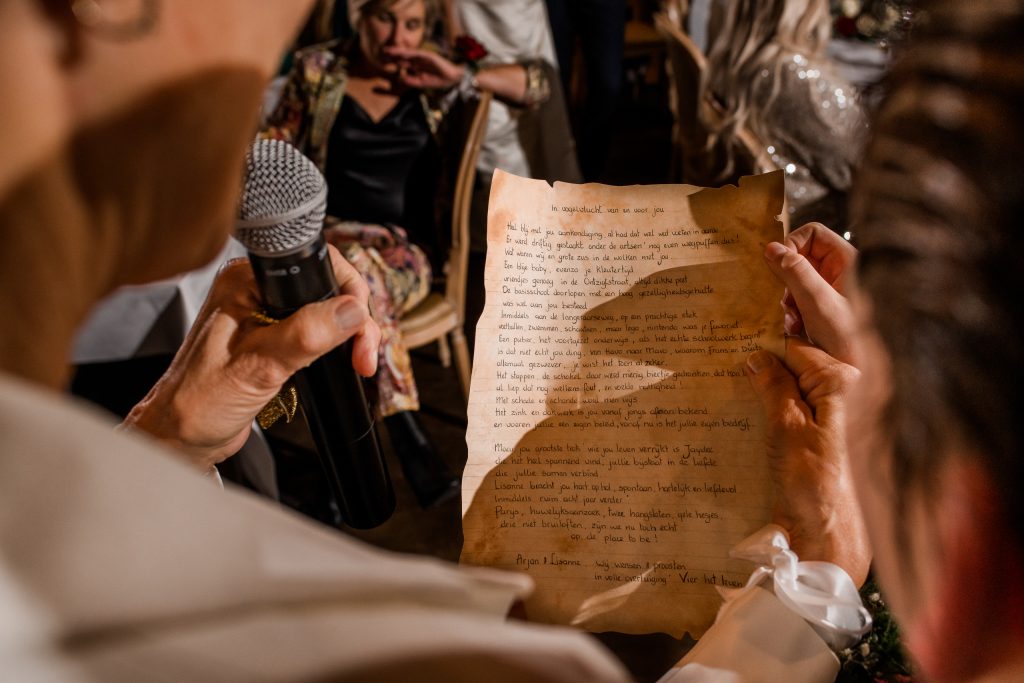 In vogelvlucht van en voor jou
Heel blij met jou aankondiging, al had dat wel wat voeten in aarde
Er werd driftig gedacht onder de artsen' nog even wegpuffen dus!
Wat waren wij en grote zus in de wolken met jou
Een blije baby, evenzo je kleutertijd
vriendjes genoeg in de Ontzijlstraat, altijd dikke pret
De basisschool doorlopen met een hoog gezelligheidsgehalte
was wel aan jou besteed
Inmiddels aan de langeraarseweg, op een prachtige stek
voetballen, zwemmen, schaatsen, maar lego, nintendo was je favoriet
Een puber, het voortgezet onderwijs, als het echte schoolwerk begint
is dat niet echt jou ding, van Havo naar Mavo, waarom Frans en Duits
allemaal gezwever, je wist het
Het stappen, de schakel daar werd menig biertje gedronken, dat kon
al liep dat nog weleens fout, en voelde
Met schade en schande word men wijs
Het zink en dakwerk is jou vanaf jongs afaan bekend
en voeren jullie een eigen beleid, vanaf nu is het jullie eigen bedrijf.
Maar jou grootste trots wie jou leven verrijkt is Jayden
die het heel spannend vind, jullie bijstaat in de liefde
die jullie samen verbind.
Lisanne bracht jou hart op hol, spontaan, hartelijk en liefdevol
Inmiddels ruim acht jaar verder
Parijs, huwelijksaanzoek, twee hangsloten, gele hesjes,
drie niet bruiloften, zijn we nu toch echt
op de place to be!
Arjan & Lisanne wij wensen & proosten
in volle overtuiging Vier het leven